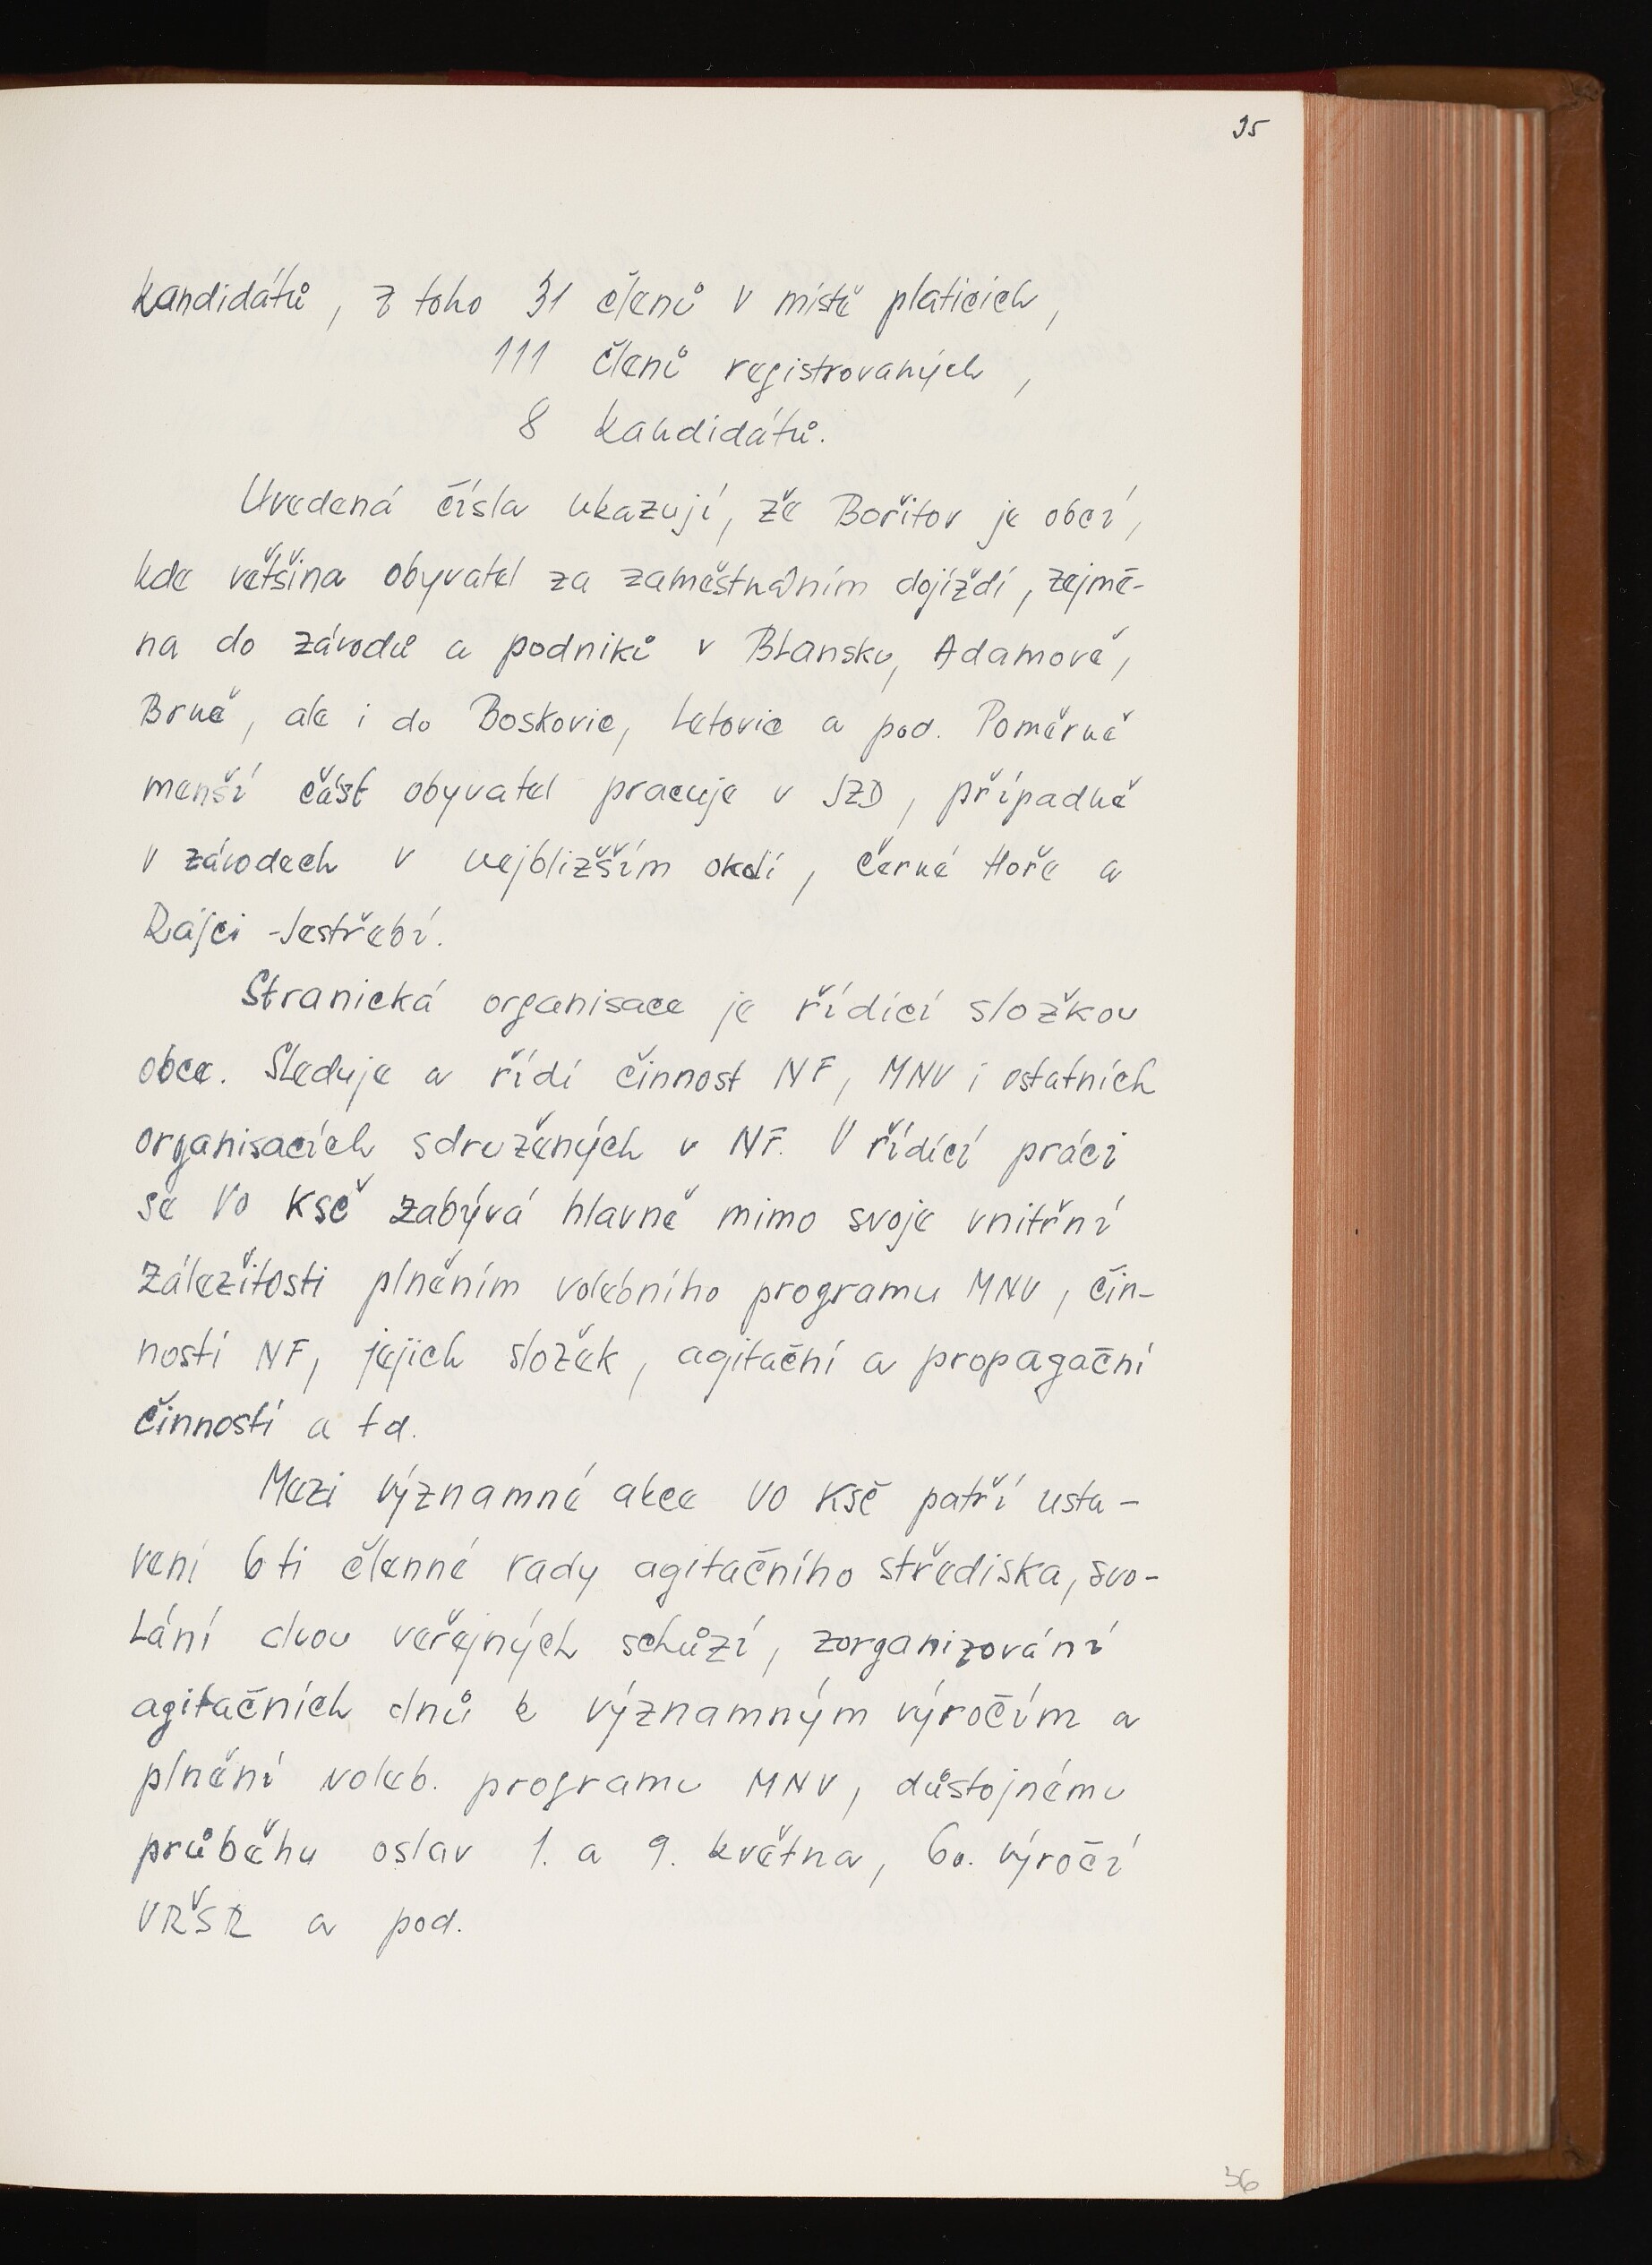 35
kandidátů, z toho 31 členů v místě platících,
111 členů registrovaných,
8 kandidátů.
Uvedená čísla ukazují, že Bořitov je obcí,
kde většina obyvatel za zaměstnáním dojíždí, zejmé-
na do závodů a podniků v Blansku, Adamově,
Brně, ale i do Boskovic, Letovic a pod. Poměrně
menší část obyvatel pracuje v JZD, případně
v závodech v nejbližším okolí, Černé Hoře a
Rájci-Jestřebí.
Stranická organisace je řídící složkou
obce. Sleduje a řídí činnost NF, MNV i ostatních
organisacích sdružených v NF. V řídící práci
se VO KSČ zabývá hlavně mimo svoje vnitřní
záležitosti plněním volebního programu MNV, čin-
ností NF, jejich složek, agitační a propagační
činností a td.
Mezi významné akce VO KSČ patří usta-
vení 6 ti členné rady agitačního střediska, svo-
lání dvou veřejných schůzí, zorganizování
agitačních dnů k významným výročím a
plnění voleb. programu MNV, důstojnému
průběhu oslav 1. a 9. května, 60. výročí
VŘSR a pod.
36